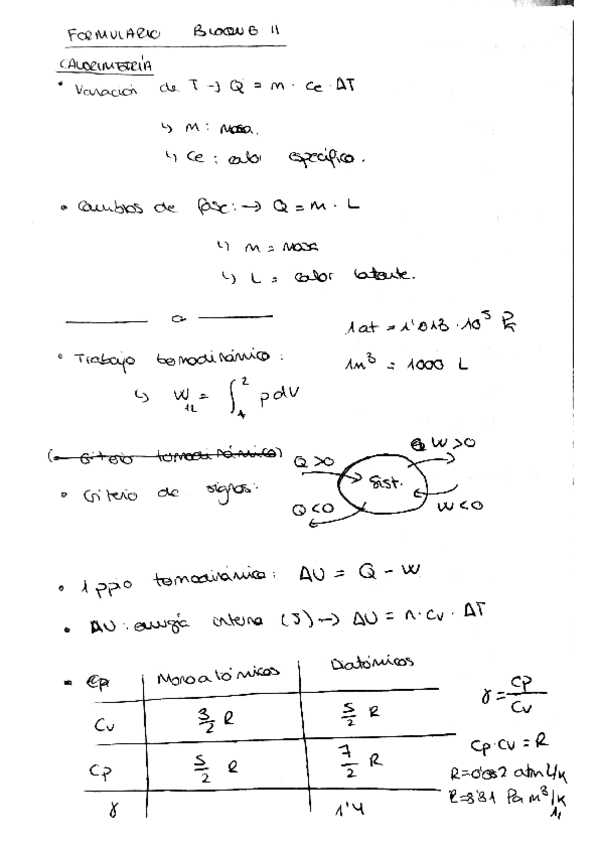 FORMULARIO BLOQUE II
CALORIMETRÍA
• Variación de T → Q = m · ce · ΔT
↳ M : masa.
↳ Ce : calor específico.
• Cambios de fase: → Q = M · L
↳ M = masa
↳ L = calor latente.
1at = 1'013 · 10⁵ Pa
• Trabajo termodinámico :
1m³ = 1000 L
↳ W₁₂ = ∫₁² p dV
(• Criterio termodinámico)
• Criterio de signos:
Q>0
W>0
Sist.
Q<0
W<0
• 1 ppio termodinámica: ΔU = Q - W
• ΔU : energía interna (J) → ΔU = n · Cv · ΔT
• Cp Monoatómicos Diatómicos
Cv 3/2 R 5/2 R
Cp 5/2 R 7/2 R
γ 1'4
γ = Cp/Cv
Cp·Cv = R
R=0'082 atm L/K
R=8'31 Pa m³/K
1,